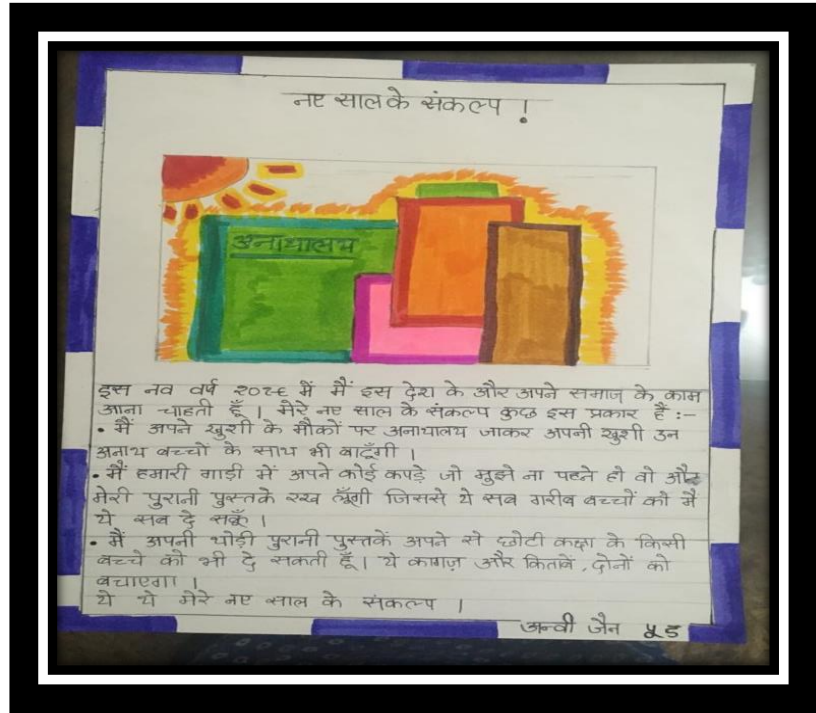 नए साल के संकल्प !
अनाथालय
इस नव वर्ष २०२६ में मैं इस देश के और अपने समाज के काम
आना चाहती हूँ । मेरे नए साल के संकल्प कुछ इस प्रकार हैं :-
• मैं अपने खुशी के मौकों पर अनाथालय जाकर अपनी खुशी उन
अनाथ बच्चों के साथ भी बाटूँगी ।
• मैं हमारी गाड़ी में अपने कोई कपड़े जो मुझे ना पहने हो वो और
मेरी पुरानी पुस्तके रख लूँगी जिससे ये सब गरीब बच्चों को मैं
ये सब दे सकूँ ।
• मैं अपनी थोड़ी पुरानी पुस्तकें अपने से छोटी कक्षा के किसी
बच्चे को भी दे सकती हूँ । ये कागज़ और किताबें, दोनों को
बचाएगा ।
ये थे मेरे नए साल के संकल्प ।
अन्वी जैन ५ ड